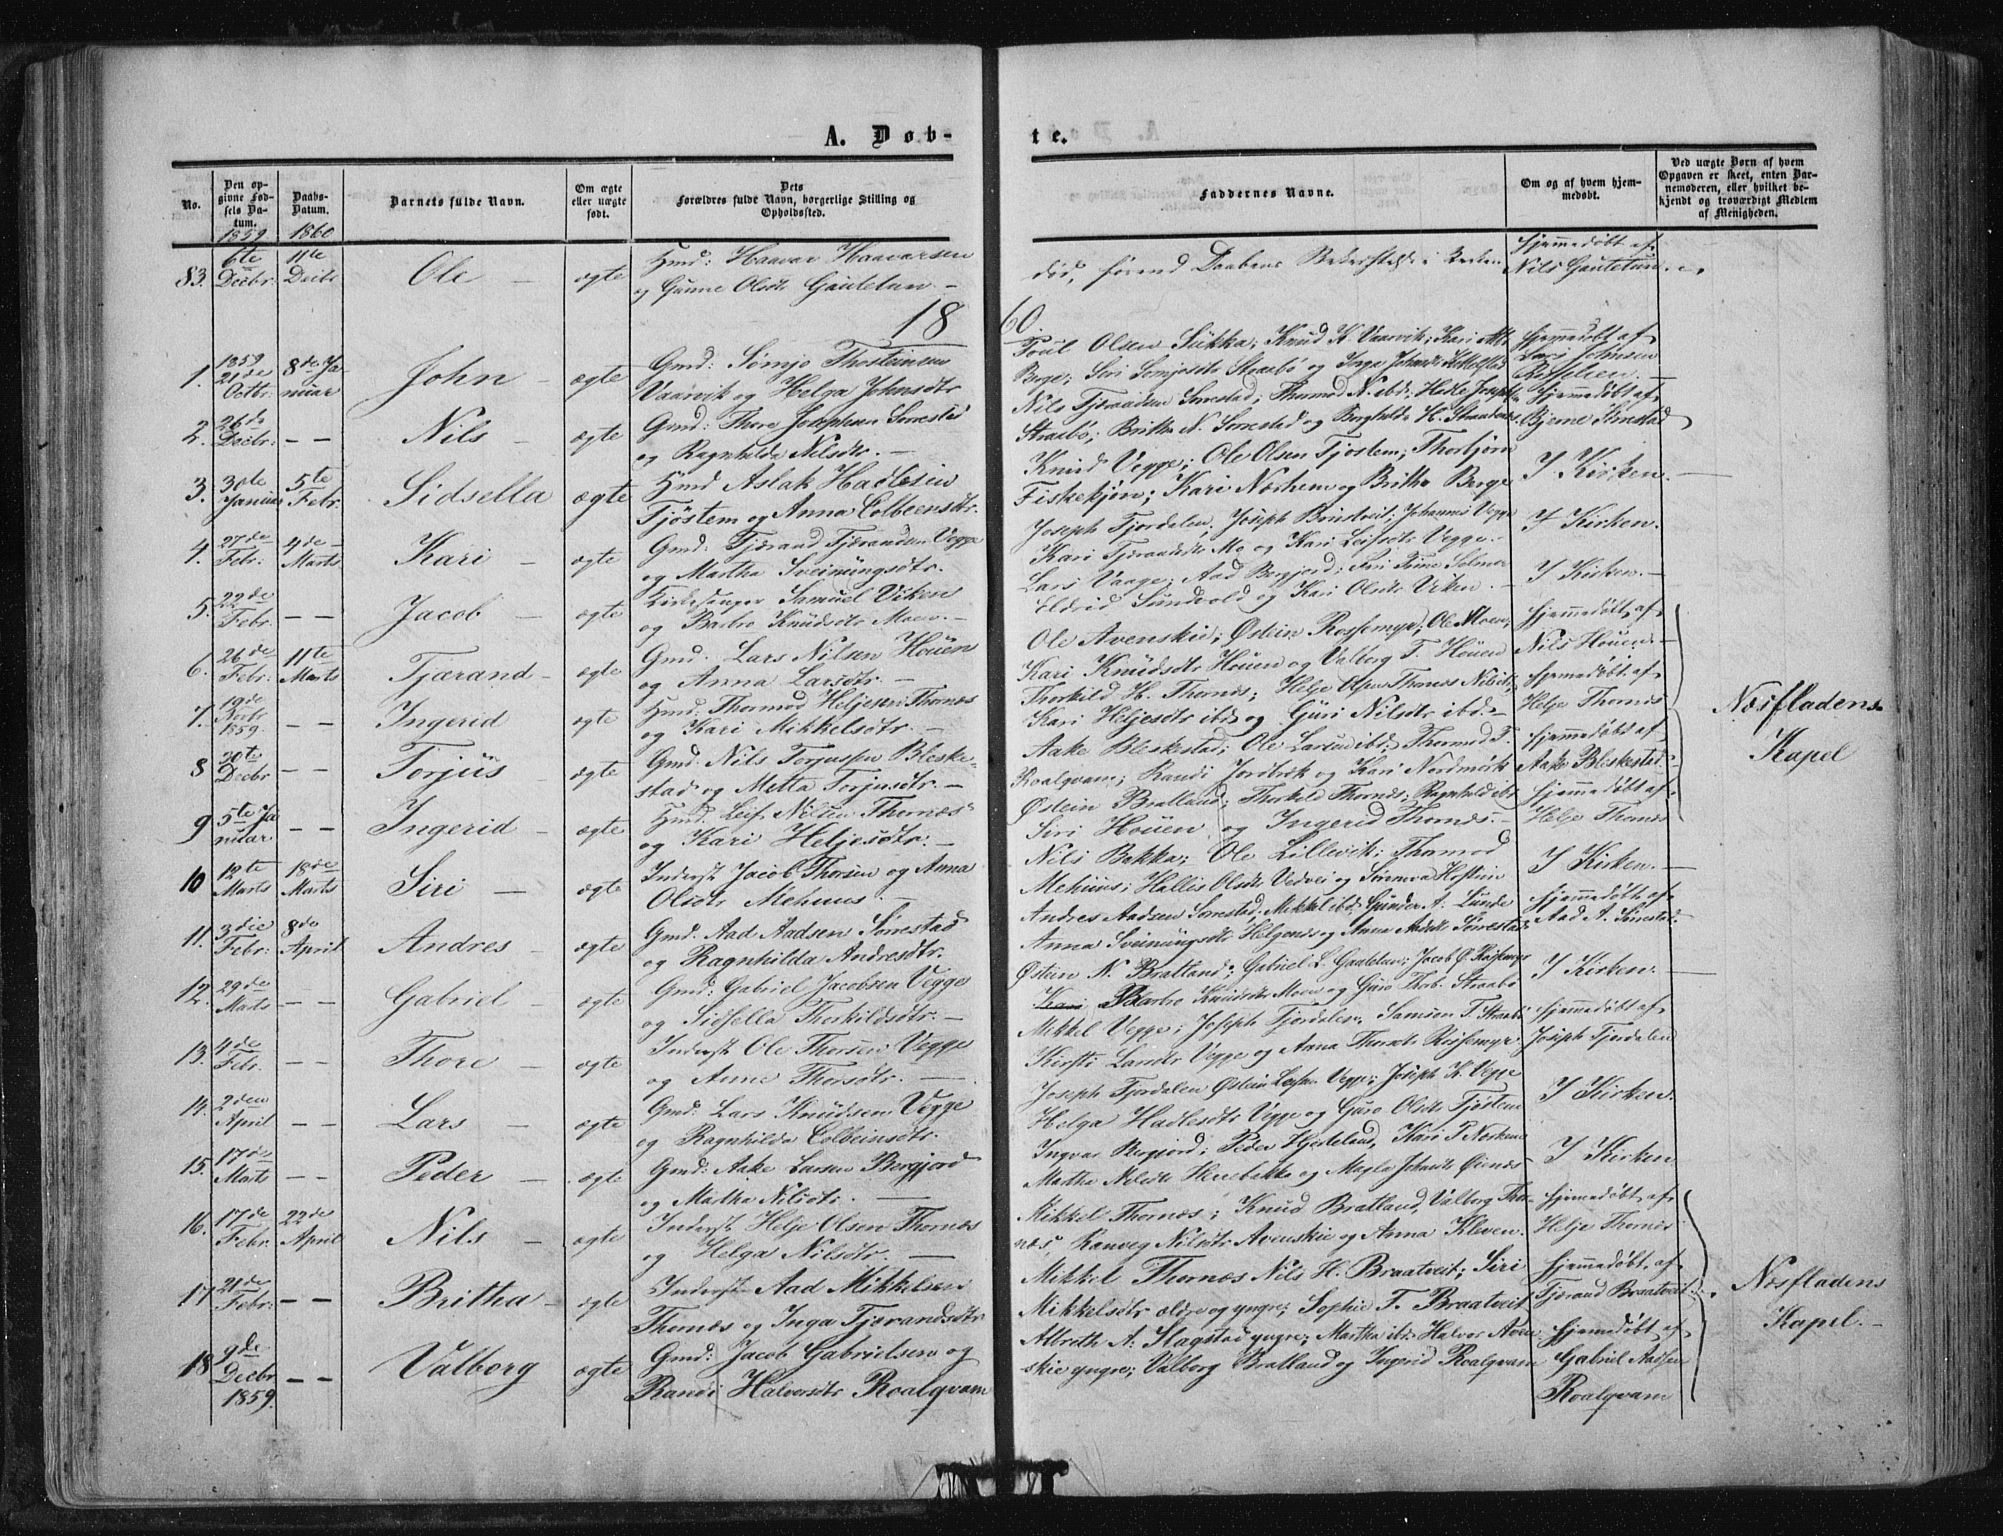 A. Døb-
te.
No.
Den opgivne Fødsels Datum.
Daabs-Datum.
Barnets fulde Navn.
Om ægte eller uægte født.
Dets Forældres fulde Navn, borgerlige Stilling og Opholdssted.
Faddernes Navne.
Om og af hvem hjemmedøbt.
Ved uægte Børn af hvem Opgaven er skeet, enten Barnemoderen, eller hvilket bekjendt og troværdigt Medlem af Menigheden.
1859 1860
83. 6te Decbr. 11te Decbr Ole – ægte Hmd: Haavar Haavarsen
og Gunne Olsdtr Gautetun –
død, førend Daabens i Kirken
Hjemmedøbt af
Nils Gautetun
1860.
1. 1859 21de Octbr. 8de Januar John – ægte Gmd: Sømjo Thosteinsen
Vaarvik og Helga Johnsdtr
Poul Olsen Sukka; Knud K. Vaarvik; Kari
Berge; Siri Somjosdtr Straabø og Inga Johansdtr
Hjemmedøbt af
Lars Johnsen
2. 26de Decbr: – – Nils – ægte Gmd: Thore Josephsen Sørrestad
og Ragnhilda Nilsdtr. –
Nils Tjærandsen Sørrestad; Thormod N. ibd;
Straabø; Britha N. Sørrestad og Borghilda H.
Hjemmedøbt af
Bjerne
3. 30te Januar 5te Febr. Sidsella ægte Hmd Aslak Hadlesen
Tjøstem og Anna Colbeensdtr.
Knud Vegge; Ole Olsen Tjøstem; Thorbjørn
Fiskekjøn; Kari Nærhem og Britha Berge
I Kirken. –
4. 27de Febr. 4de Marts Kari – ægte Gmd: Tjærand Tjærandsen Vegge
og Martha Sveinungsdtr.
Joseph Fjordalen; Joseph Brustveit; Johannes Vegge
Kari Tjærandsdtr Mo og Kari Leifsdtr Vegge. –
I Kirken.
5. 22de Febr. – – Jacob – ægte Kirkesanger Samuel Viken
og Barbro Knudsdtr Moen. –
Lars Vaage; Aad Bergjord; Trine Selmer
Eldrid Sundvold og Kari Olsdtr Viken. –
I Kirken. –
6. 26de Febr. 11te Marts Tjærand – ægte Gmd. Lars Nilsen Houen
og Anna Larsdtr. –
Ole Avenskie; Østein Rossemyr; Ole Moen;
Kari Knudsdtr Houen og Valborg T. Houen
Hjemmedøbt af
Nils Houen. –
7. 19de Novbr 1859. Ingerid ægte Hmd: Thormod Heljesen Thornæs
og Kari Mikkelsdtr. –
Thorkild H. Thornæs; Helje Olsen Thornæs
Kari Heljesdtr ibd: og Guri Nilsdtr ibd: –
Hjemmedøbt af
Helje Thornæs
Næsfladens
Kapel
8 30te Decbr – – Torjus – ægte Gmd: Nils Torjusen Bleske-
stad og Metta Torjusdtr. –
Aake Bleskestad; Ole Larsen ibd; Thormod T.
Roalqvam; Randi Jordbrek og Kari Nordmork
Hjemmedøbt af
Aake Bleskestad
9 5te Januar – – Ingerid – ægte Hmd: Leif Nilsen Thornæs
og Kari Heljesdtr. –
Østein Bratland; Thorkild Thornæs; Ragnhild ibd
Siri Houen og Ingerid Thornæs. –
Hjemmedøbt af
Helje Thornæs
10 12te Marts 18de Marts Siri – ægte Inderst Jacob Thorsen og Anna
Olsdtr Mehuus. –
Nils Bakka; Ole Lillevik; Thormod
Mehuus; Hallis Olsdtr Vedvei og
I Kirken. –
11. 3die Febr: 8de April Andres – ægte Gmd: Aad Aadsen Sørrestad
og Ragnhilda Andresdtr.
Andres Aadsen Sørrestad; Mikkel ibd; Gunder A. Lunde
Anna Sveinungsdtr Helgenæs og Anna Aadsdtr Sørrestad
Hjemmedøbt af
Aad A. Sørrestad
12. 29de Marts – – Gabriel – ægte Gmd: Gabriel Jacobsen Vegge
og Sidsella Thorkildsdtr. –
Østein N. Bratland; Gabriel L. Gautetun; Jacob Ø. Rossemyr
Kari Barbro Knudsdtr Moen og Guro Thob. Straabø
I Kirken. –
13. 4de Febr. – – Thore – ægte Inderst Ole Thorsen Vegge
og Anne Thorsdtr. –
Mikkel Vegge; Joseph Fjordalen, Samson T. Straabø
Kirsti Larsdtr Vegge og Anna Thorsdtr Rossemyr
Hjemmedøbt af
Joseph Fjordalen
14. 2den April – – Lars – ægte Gmd: Lars Knudsen Vegge
og Ragnhilda Colbeinsdtr.
Joseph Fjordalen Østein Larsen Vegge; Joseph K. Vegge
Helga Hadlesdtr Vegge og Guro Olsdtr Tjøstem
I Kirken.
15. 17de Marts – – Peder – ægte Gmd: Aake Larsen Bergjord
og Martha Nilsdtr. –
Ingvar Bergjord; Peder Hjorteland, Kari P. Nærhem
Martha Nilsdtr Herabakka og Magla Johansdtr Øienæs
I Kirken
16. 17de Febr. 22de April Nils – ægte Inderst Helje Olsen Thornæs
og Helga Nilsdtr. –
Mikkel Thornæs; Knud Bratland, Valborg Thor-
næs, Ranveg Nilsdtr Avenskie og Anna Kleven.
Hjemmedøbt af
Helje Thornæs
17 21de Febr: – – Britha – ægte Inderst Aad Mikkelsen
Thornæs og Inga Tjærandsdtr
Mikkel Thornæs Nils H. Braatveit; Siri
Mikkelsdtr ældre og yngre; Sophie T. Braatveit
Hjemmedøbt af
Tjærand Braatveit
Næsfladens
Kapel. –
18 9de Decbr 1859. – – Valborg ægte Gmd: Jacob Gabrielsen og
Randi Halvorsdtr Roalqvam
Albreth A. Slagstad yngre; Martha ibd: Halvor Aven-
skie yngre; Valborg Bratland og Ingerid Roalqvam
Hjemmedøbt af
Gabriel Aadsen
Roalqvam